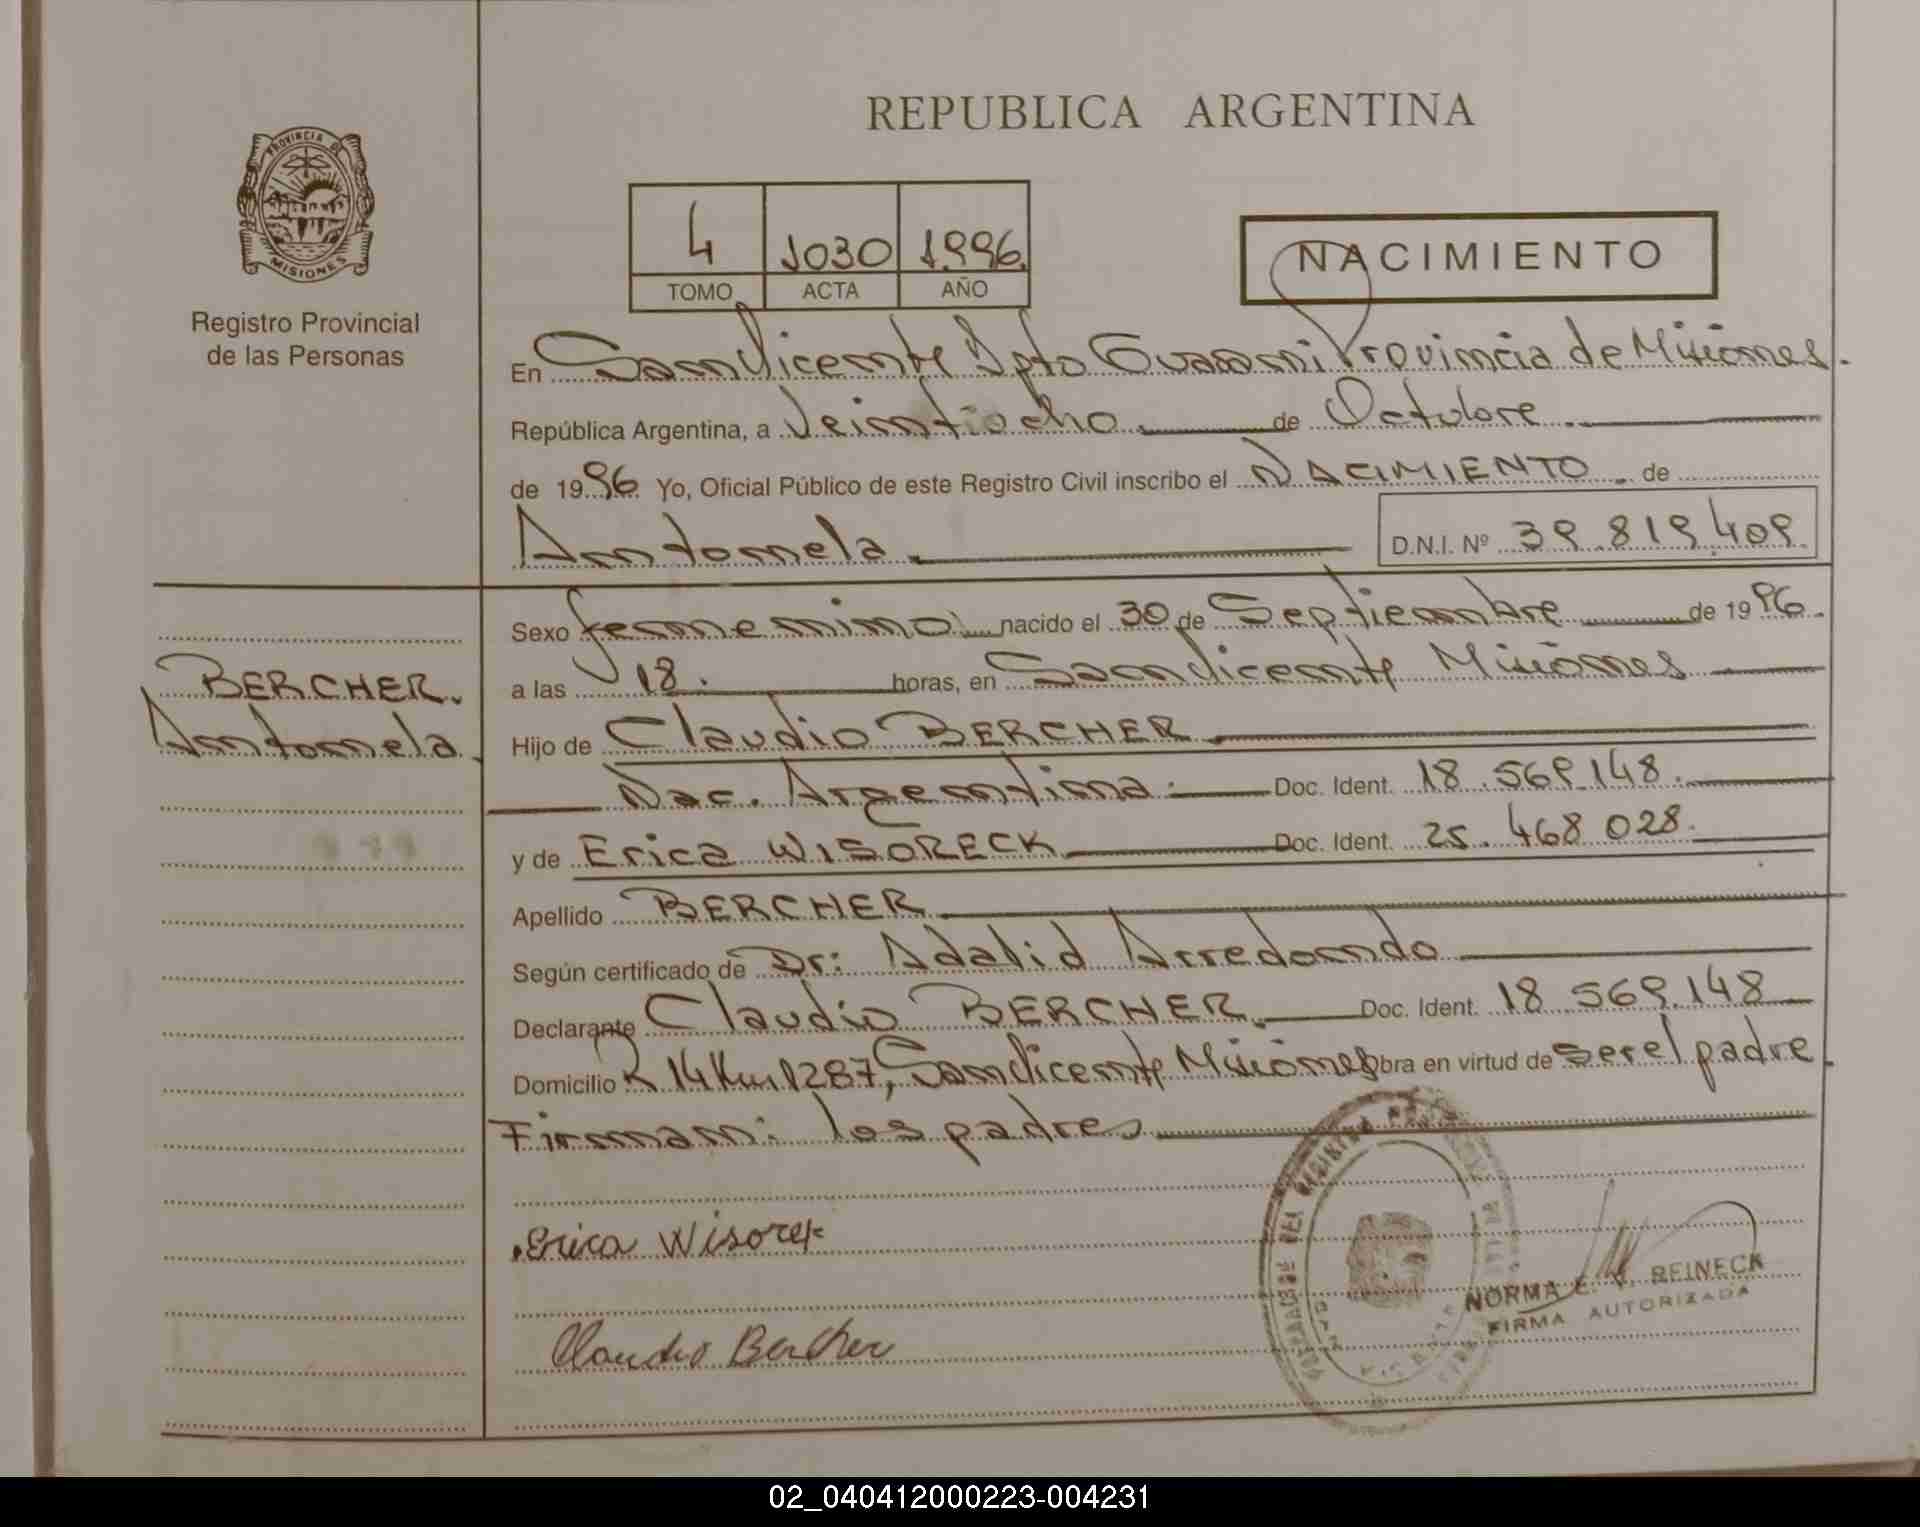 REPUBLICA ARGENTINA
PROVINCIA DE
MISIONES
Registro Provincial
de las Personas
4 1030 1996
TOMO ACTA AÑO
NACIMIENTO
En San Vicente Dpto Guarani Provincia de Misiones.
República Argentina, a Veintiocho de Octubre
de 1996 Yo, Oficial Público de este Registro Civil inscribo el NACIMIENTO de
Antonela
D.N.I. Nº 39.819.409
BERCHER.
Antonela
Sexo femenino nacido el 30 de Septiembre de 1996.
a las 18. horas, en San Vicente Misiones
Hijo de Claudio BERCHER
Nac. Argentina. Doc. Ident. 18.569.148.
y de Erica WISORECK Doc. Ident. 25.468.028.
Apellido BERCHER
Según certificado de Dr: Adalid Arredondo
Declarante Claudio BERCHER. Doc. Ident. 18.569.148
Domicilio R 14 Km 1287, San Vicente Misiones Obra en virtud de ser el padre.
Firman: los padres
Erica Wisorek
Claudio Bercher
NORMA E. REINECK
FIRMA AUTORIZADA
02_040412000223-004231